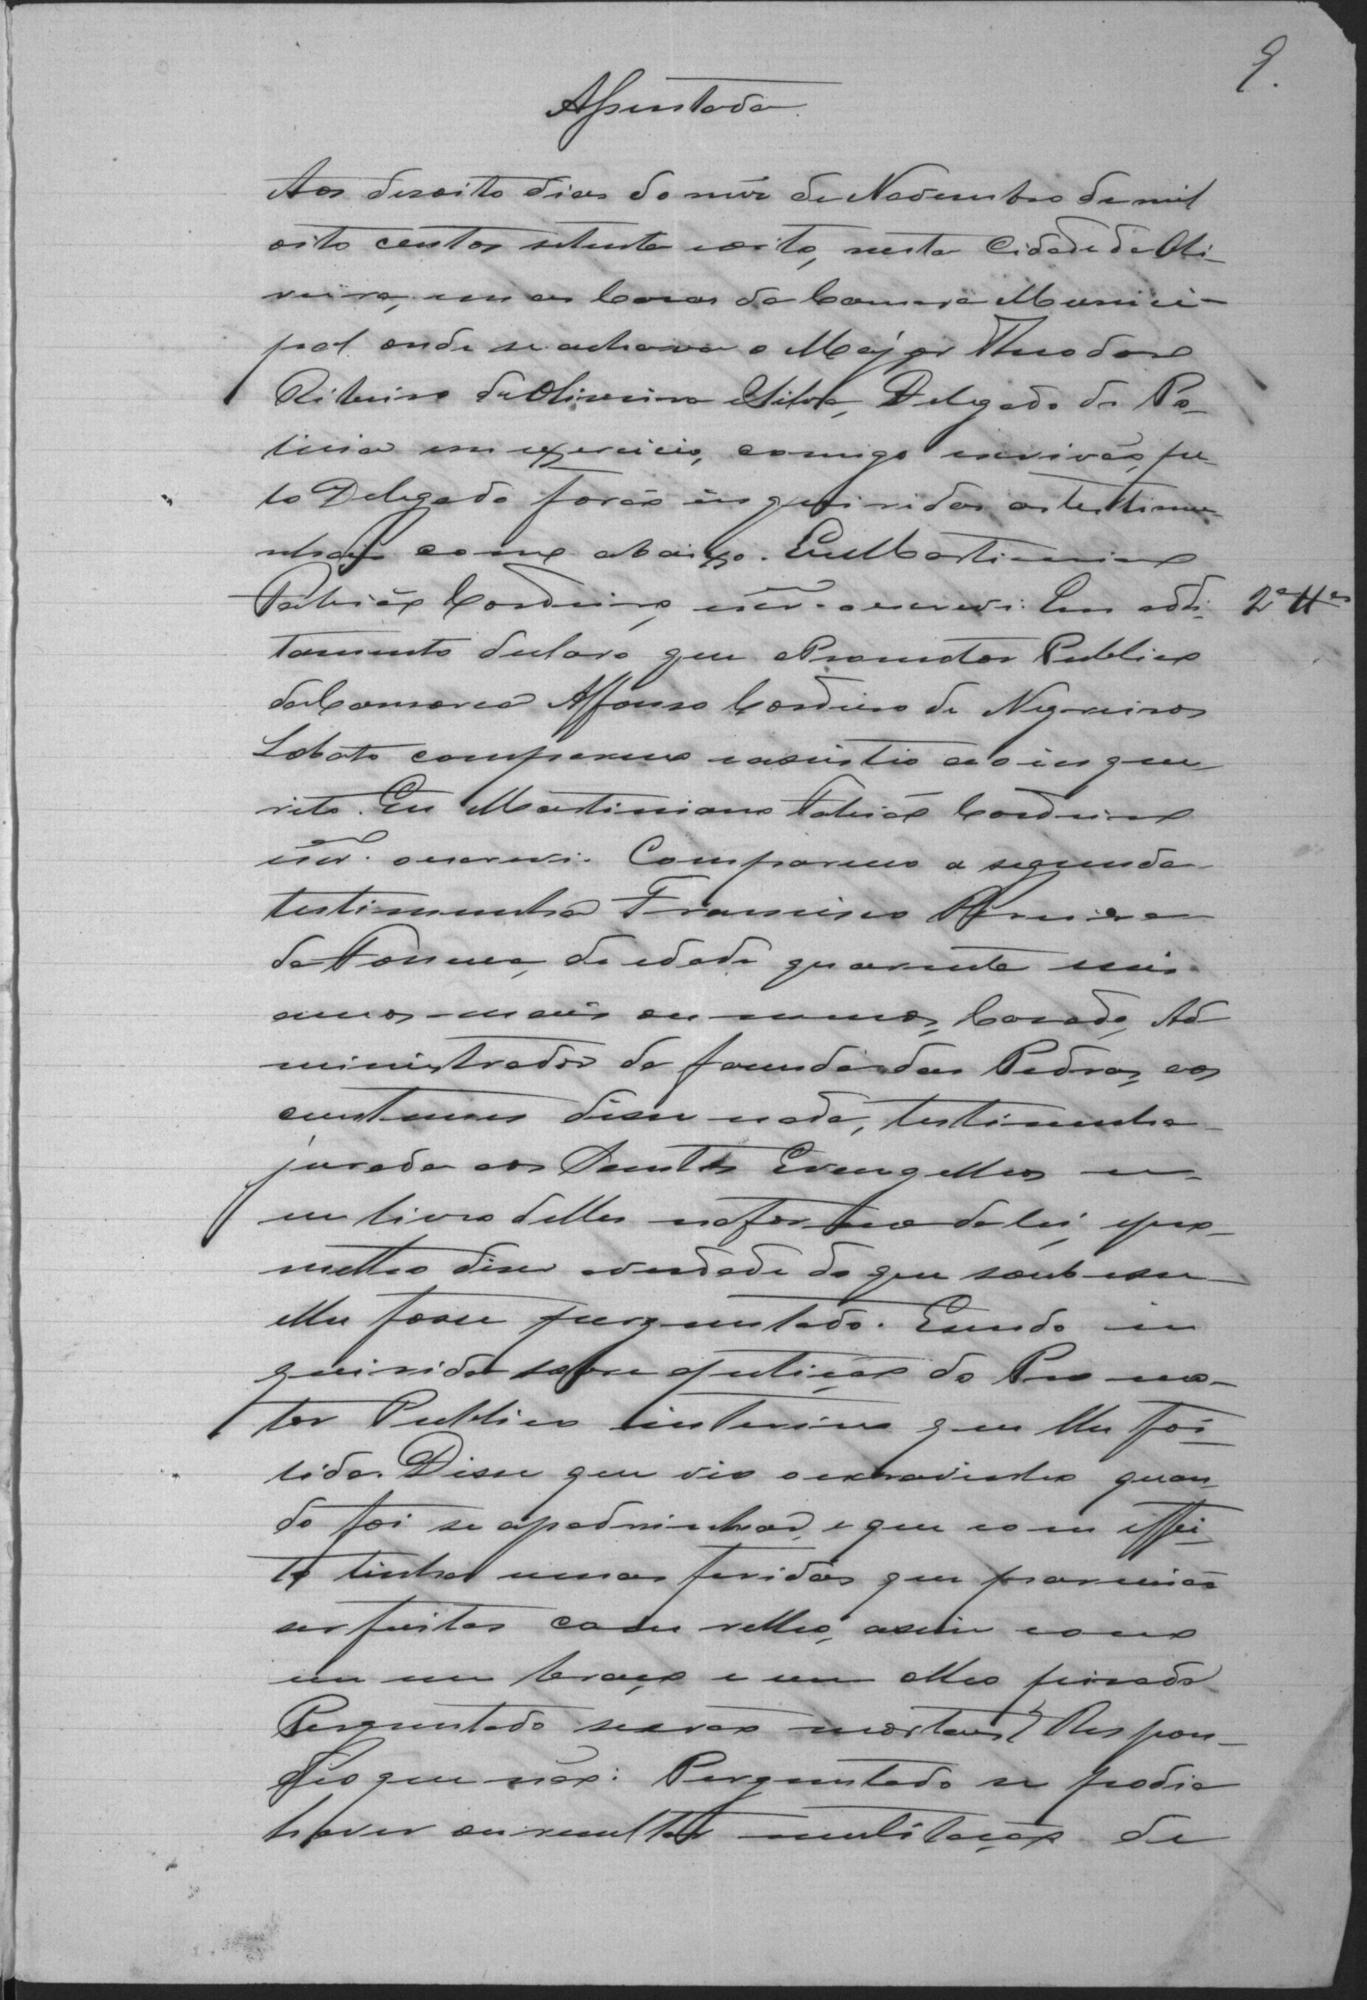 9.
Assentada.
Aos desoito dias do mêz de Novembro de mil
oito centos setenta e oito, nesta Cidade da Oli-
veira, em as Casas da Camara Munici-
pal onde se achava o Major Theodoro
Ribeiro de Oliveira e Silva, Delegado de Po-
licia em exercicio, comigo escrivão, pe-
lo Delegado forão inqueridas as testimu-
nhas como abaixo. Eu Martiniano
Patricio Cordeiro, escr.am o escrevi: Em adi- 2ª ttas
tamento declaro que o Promotor Publico
da Comarca Affonso Cordeiro de Negreiros
Lobato compareceo e assistio ao inque-
rito. Eu Martiniano Patricio Cordeiro
escr.am o escrevi. Compareceo a segunda
testimunha Francisco Ferreira
da Fonseca, de edade quarenta e seis
annos mais ou menos, Casado, Ad
ministrador da fasenda das Pedras, aos
custumes disse nada, testimunha
jurada aos Santos Evangelhos em
um livro delles na forma da lei, e pro-
metteo diser a verdade do que soubesse e
lhe fosse perguntado. E sendo in
querida sobre a petição do Promo-
tor Publico interino que lhe foi
lida. Disse que vio o escravinho quan-
do foi se apadrinhar, e que com effei-
to tinha umas feridas que parecião
ser feitas com relho, assim como
em um braço e um olho pisado
Perguntado se erão mortaes? Respon-
deo que não: Perguntado se podia
haver ou resultar mutilação de